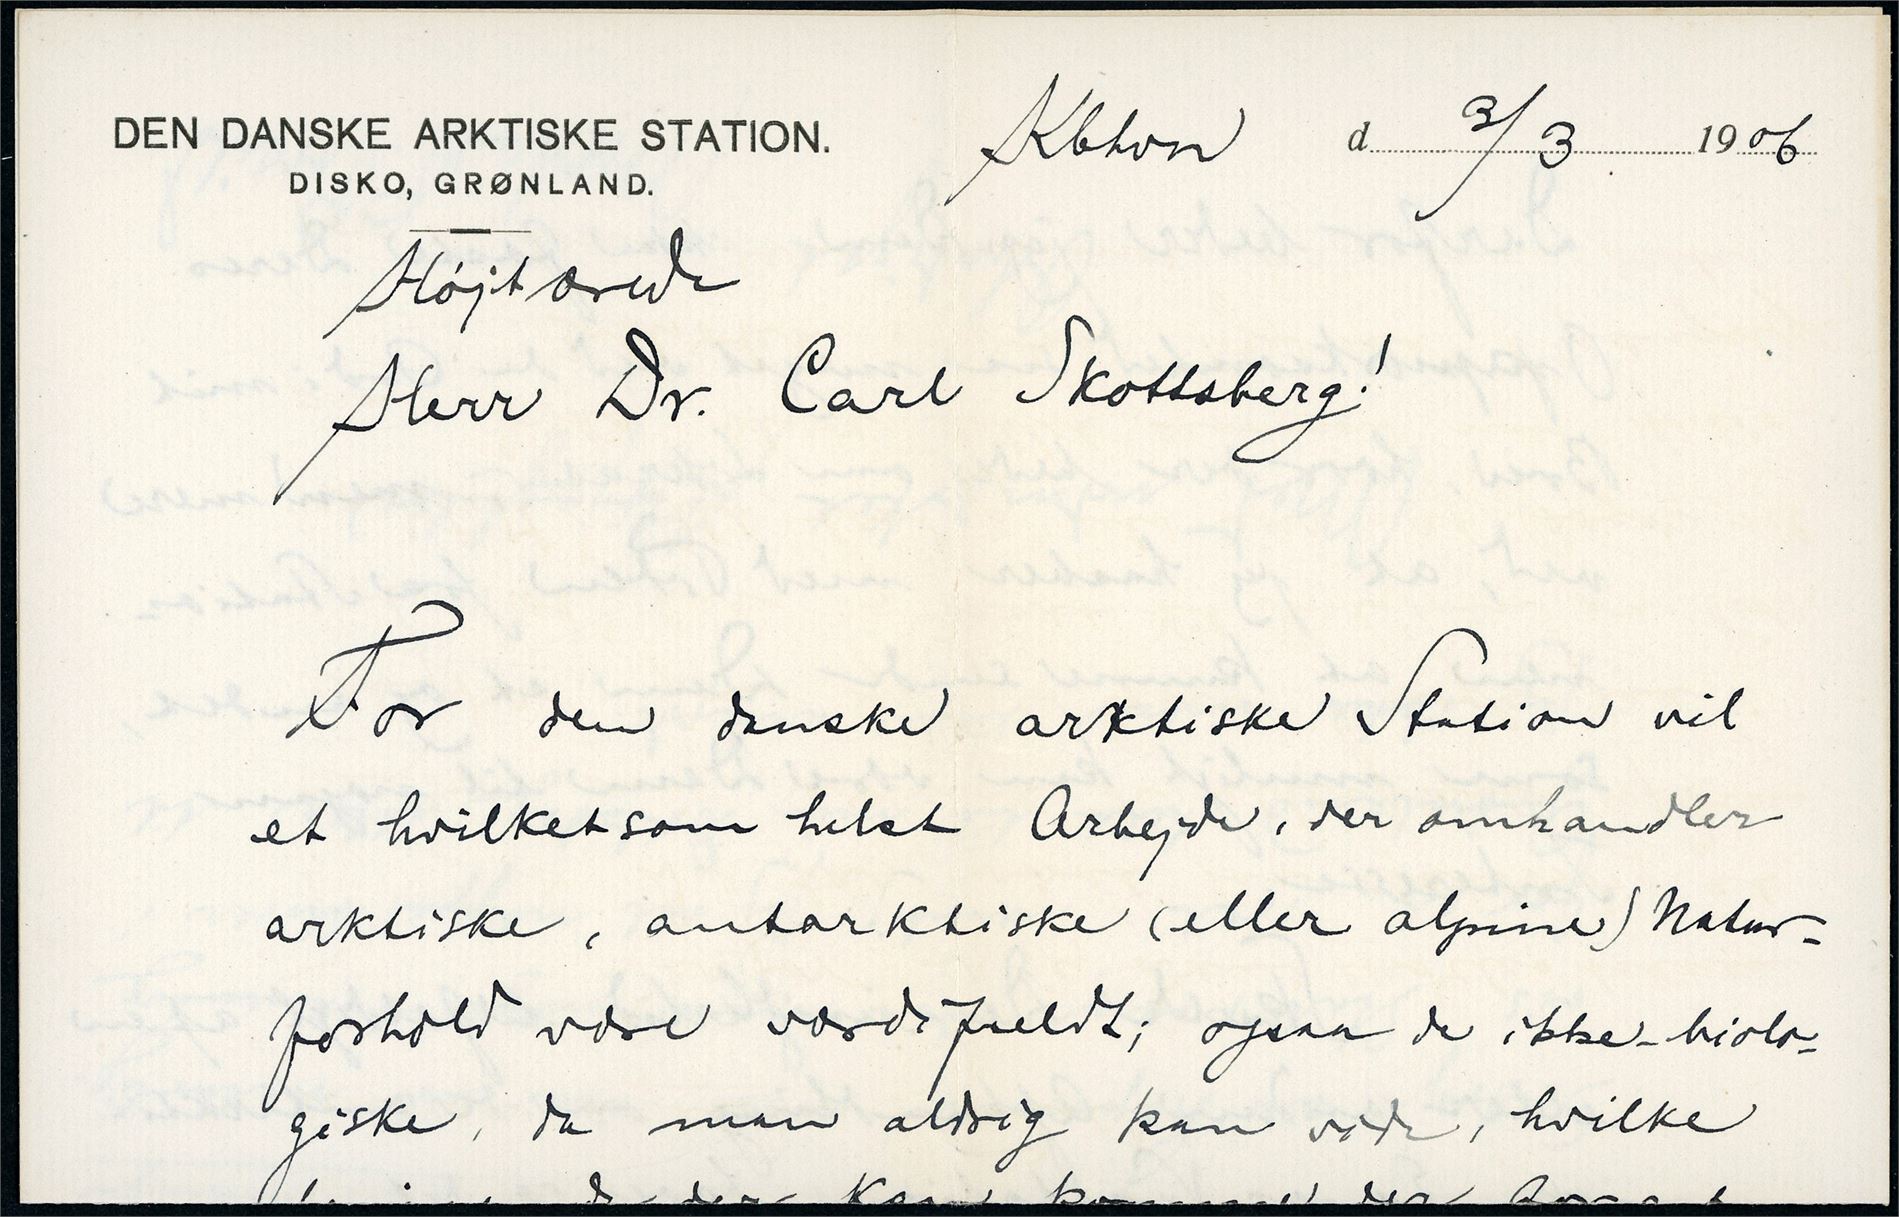 DEN DANSKE ARKTISKE STATION.
DISKO, GRØNLAND.
Kbhvn d. 3/3 1906
Højtærede
Herr Dr. Carl Skottsberg!
For den danske arktiske Station vil
et hvilketsom helst Arbejde, der omhandler
arktiske, antarktiske (eller alpine) Natur-
forhold være værdifuldt; ogsaa de ikke-biolo-
giske, da man aldrig kan vide, hvilke